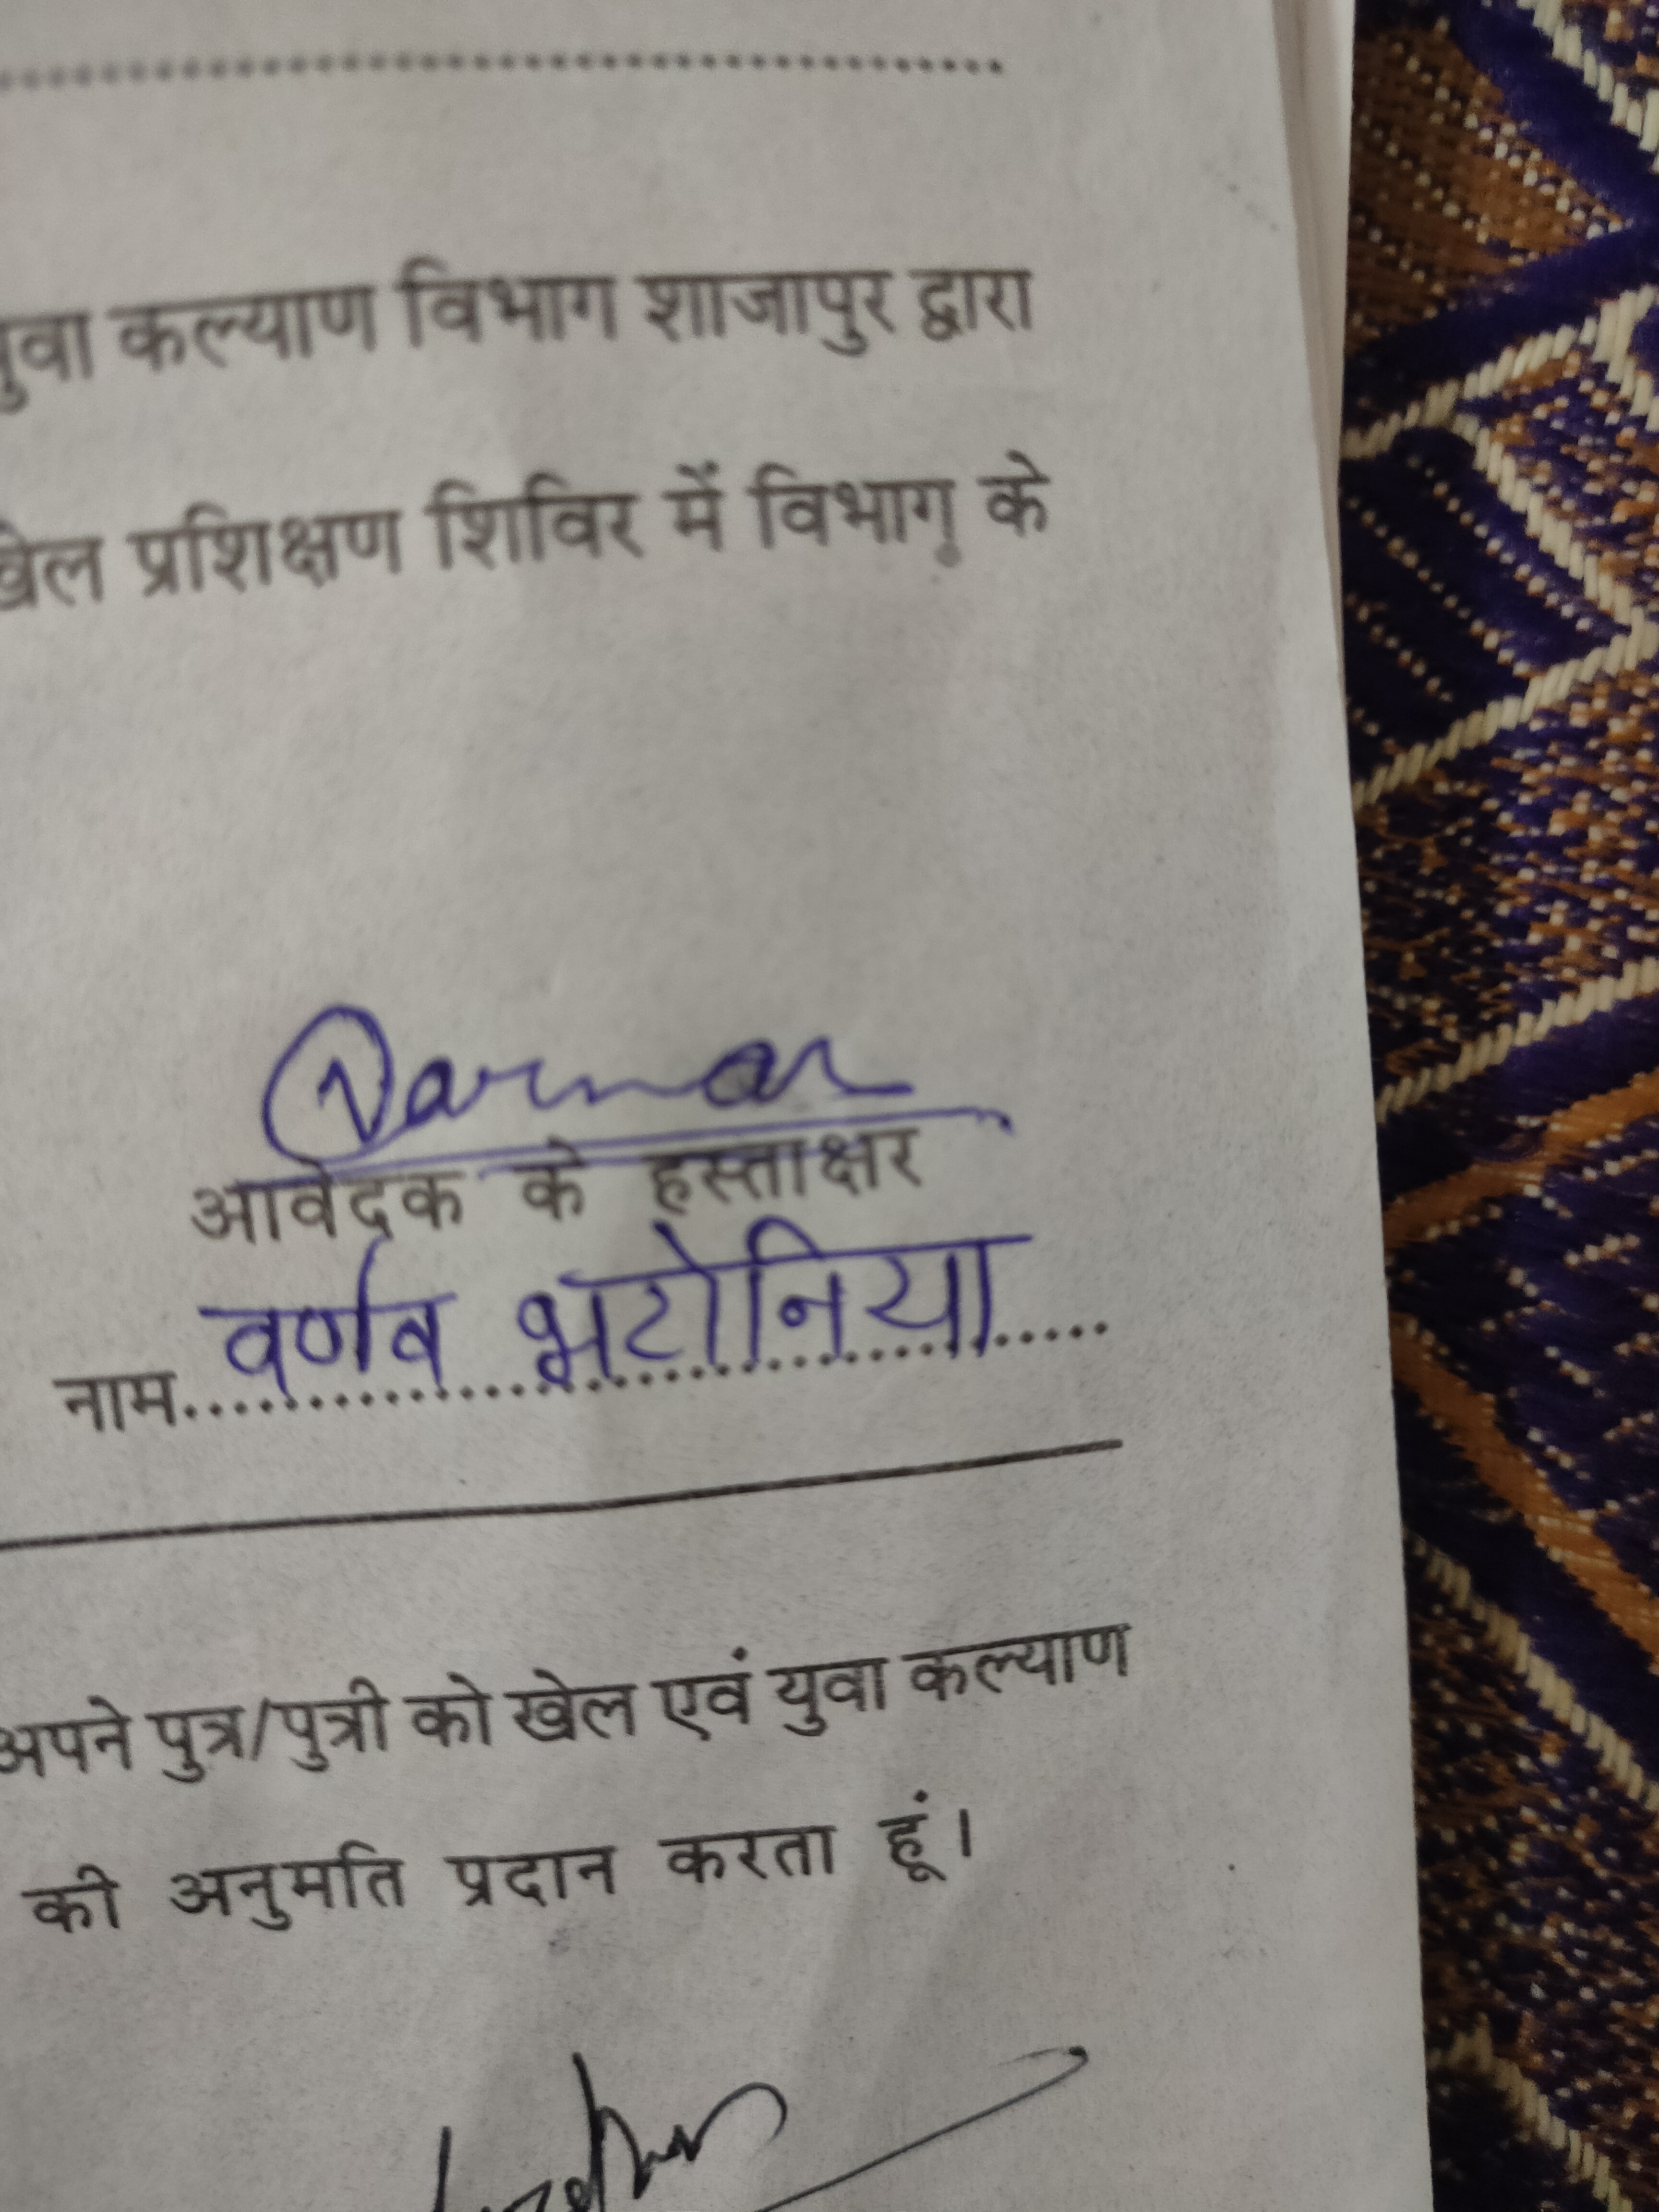 युवा कल्याण विभाग शाजापुर द्वारा
खेल प्रशिक्षण शिविर में विभाग के
Varnav
आवेदक के हस्ताक्षर
नाम..... वर्णव भटोनिया .....
अपने पुत्र/पुत्री को खेल एवं युवा कल्याण
की अनुमति प्रदान करता हूं।